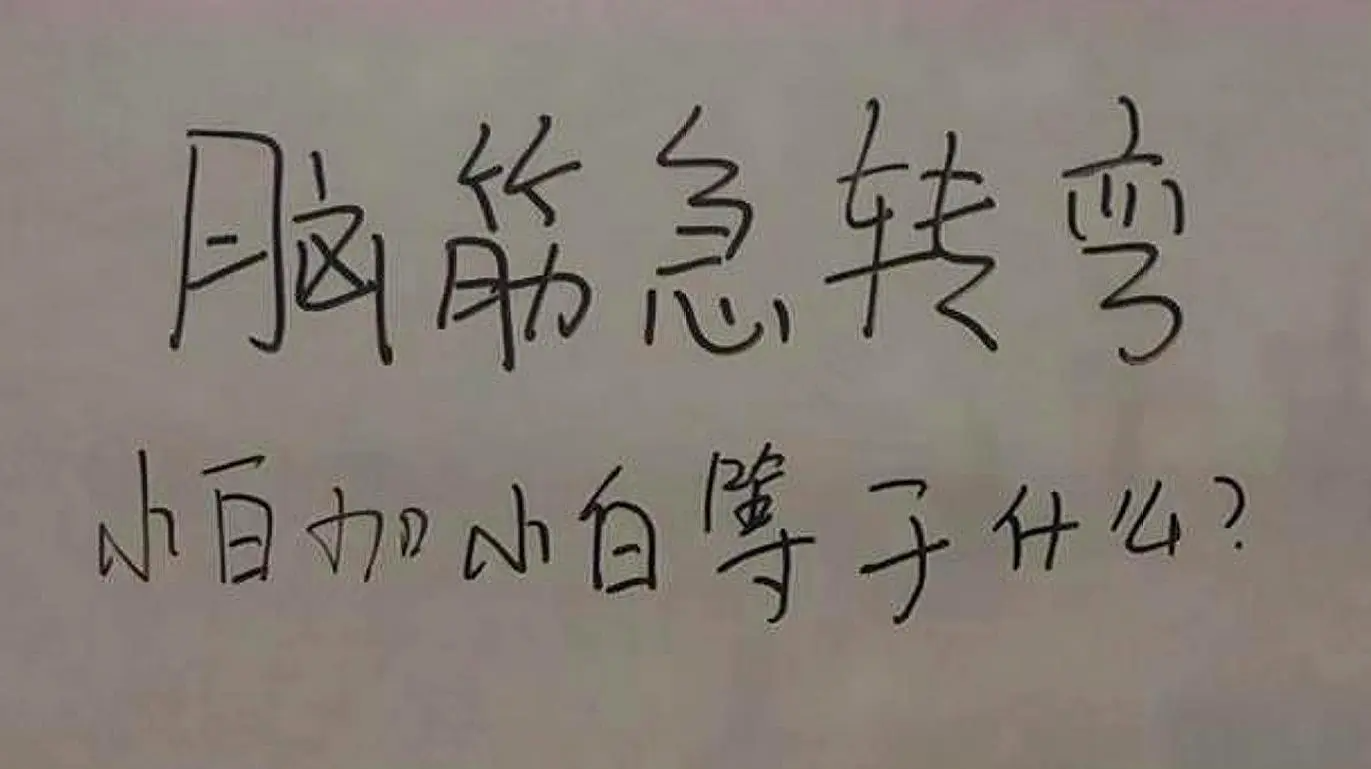 脑筋急转弯
小百加小白等于什么?